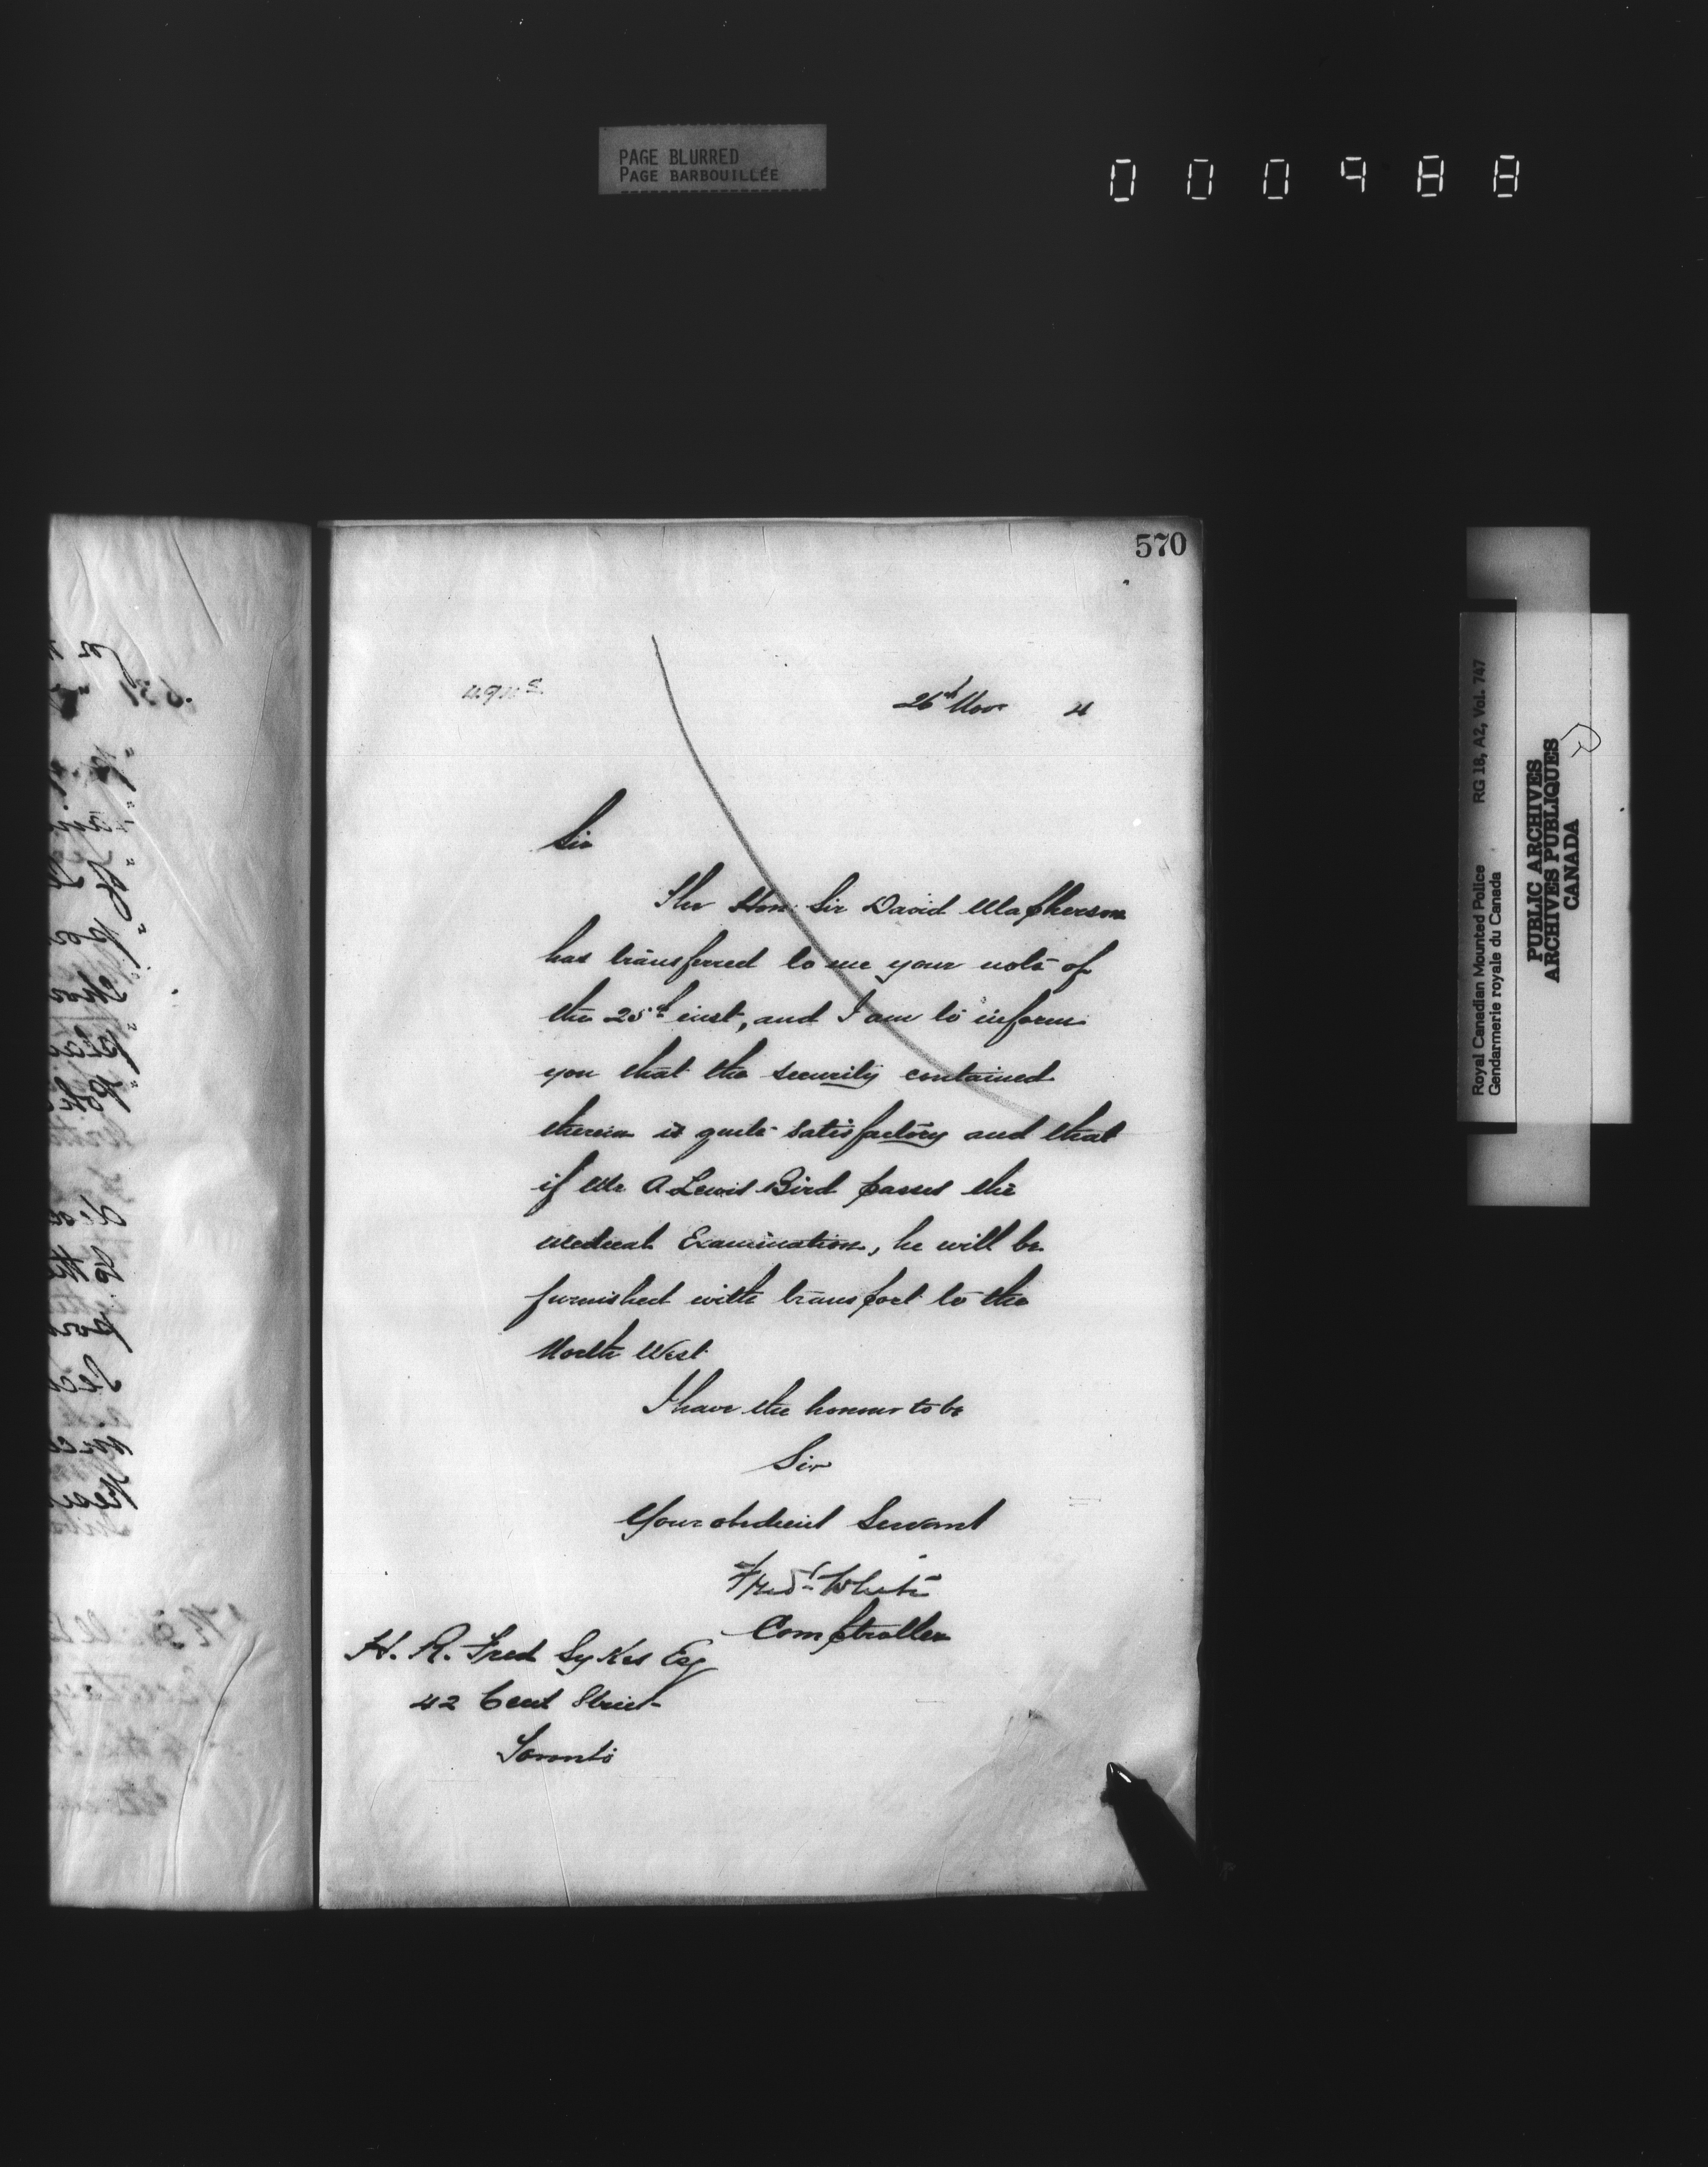 PAGE BLURRED
PAGE BARBOUILLÉE
000988
570
26th Nov 4
Sir
The Hon. Sir David Macpherson
has transferred to me your note of
the 25th inst, and I am to inform
you that the security contained
therein is quite satisfactory and that
if Mr A Lewis Bird passes the
medical Examination, he will be
furnished with transport to the
North West
I have the honour to be
Sir
Your obedient Servant
Fred White
Comptroller
H. R. Fred Sykes Esq
42 Street
Toronto
Royal Canadian Mounted Police RG 18, A2, Vol. 747
Gendarmerie royale du Canada
PUBLIC ARCHIVES
ARCHIVES PUBLIQUES
CANADA